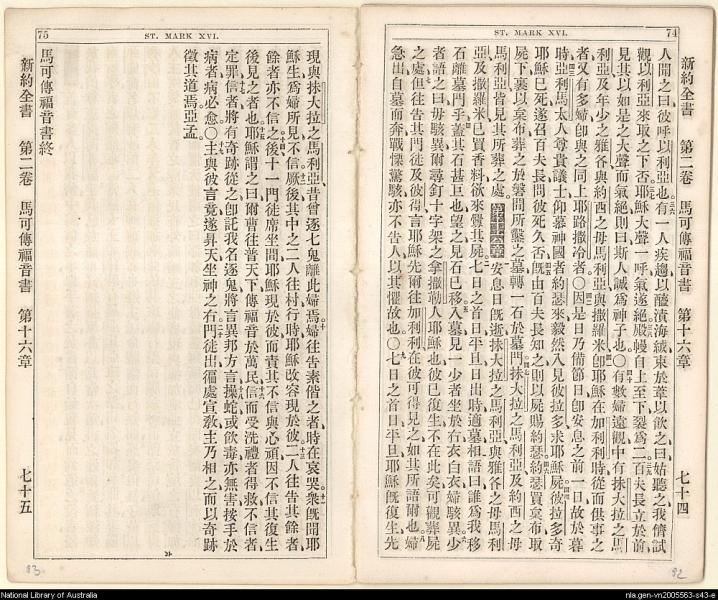 74
ST. MARK XVI.
新約全書 第二卷 馬可傳福音書 第十六章 七十四
人聞之曰彼呼以利亞也有一人疾趨以醯漬海絨束於葦以飲之曰姑聽之我儕試
觀以利亞來取之下否耶穌大聲一呼氣遂絕殿幔自上至下裂爲二百夫長立於前
見其以如是之大聲而氣絕則曰斯人誠爲神子也〇有數婦遠觀中有抹大拉之馬
利亞及年少之雅各與約西之母馬利亞與撒羅米卽耶穌在加利利時從而供事之
者又有多婦卽與之同上耶路撒冷者〇因是日乃備節日卽安息之前一日故於暮
時亞利馬太人尊貴議士仰慕神國者約瑟來毅然入見彼拉多求耶穌屍彼拉多奇
耶穌已死遂召百夫長問彼死久否旣由百夫長知之則以屍賜約瑟約瑟買枲布取
屍下裹以枲布葬之於磐間所鑿之墓轉一石於墓門抹大拉之馬利亞及約西之母
馬利亞皆見其所葬之處第十六章安息日旣逝抹大拉之馬利亞與雅各之母馬利
亞及撒羅米已買香料欲來膏其屍七日之首日平旦日出時適墓相語曰誰爲我移
石離墓門乎蓋其石甚巨也望之見石已移入墓見一少者坐於右衣白衣婦駭異少
者語之曰毋駭異爾尋釘十字架之拿撒勒人耶穌也彼已復生不在此矣可觀葬屍
之處但往告其門徒及彼得言耶穌先爾往加利利在彼可得見之如其所語爾也婦
急出自墓而奔戰慄驚駭亦不告人以其懼故也〇七日之首日平旦耶穌旣復生先
92
75
ST. MARK XVI.
現與抹大拉之馬利亞昔曾逐七鬼離此婦焉婦往告素偕之者時在哀哭衆旣聞耶
穌生爲婦所見不信厥後其中之二人往村行時耶穌改容現於彼二人往告其餘者
餘者亦不信之後十一門徒席坐間耶穌現於彼而責其不信與心頑因不信其復生
後見之者也耶穌謂之曰爾曹往普天下傳福音於萬民信而受洗禮者得救不信者
定罪信者將有奇跡從之卽託我名逐鬼將言異邦方言操蛇或飲毒亦無害按手於
病者病必愈〇主與彼言竟遂昇天坐神之右門徒出徧處宣敎主乃相之而以奇跡
徵其道焉亞孟
馬可傳福音書終
新約全書 第二卷 馬可傳福音書 第十六章 七十五
93
National Library of Australia
nla.gen-vn2005563-s43-e